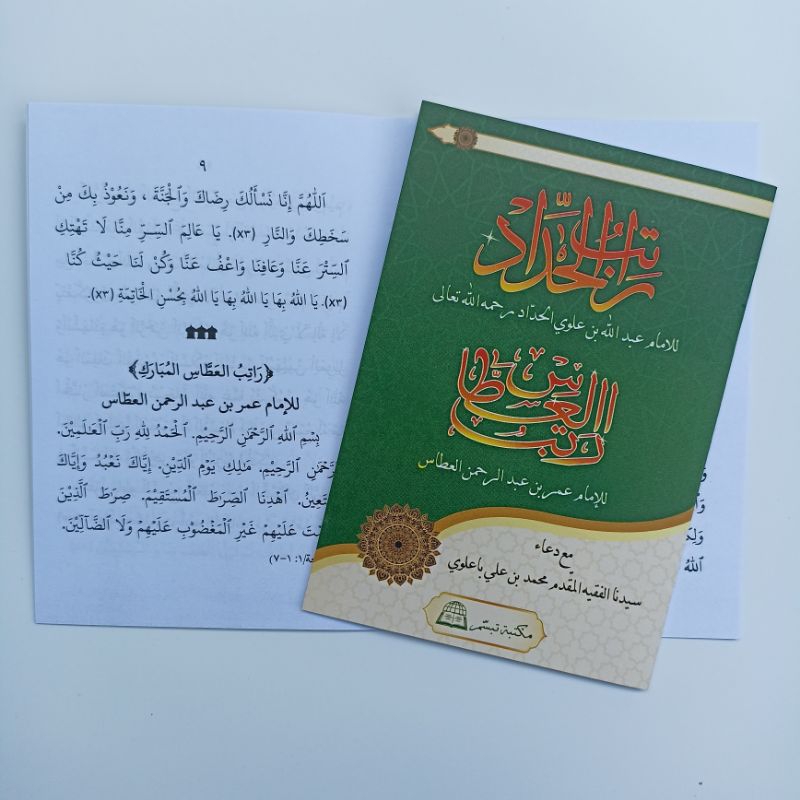 ٩
اَللّٰهُمَّ إِنَّا نَسْأَلُكَ رِضَاكَ وَالْجَنَّةَ ، وَنَعُوْذُ بِكَ مِنْ
سَخَطِكَ وَالنَّارِ (x٣). يَا عَالِمَ السِّرِّ مِنَّا لَا تَهْتِكِ
السِّتْرَ عَنَّا وَعَافِنَا وَاعْفُ عَنَّا وَكُنْ لَنَا حَيْثُ كُنَّا
(x٣). يَا اَللهُ بِهَا يَا اَللهُ بِهَا يَا اَللهُ بِحُسْنِ الْخَاتِمَةِ (x٣).
﴿رَاتِبُ العَطَّاسِ المُبَارَكِ﴾
للإمام عمر بن عبد الرحمن العطّاس
بِسْمِ اللهِ الرَّحْمٰنِ الرَّحِيْمِ. اَلْحَمْدُ لِلهِ رَبِّ الْعَلَمِيْنَ.
الرَّحْمٰنِ الرَّحِيْمِ. مَلِكِ يَوْمِ الدِّيْنِ. إِيَّاكَ نَعْبُدُ وَإِيَّاكَ
نَسْتَعِيْنُ. اهْدِنَا الصِّرَطَ الْمُسْتَقِيْمَ. صِرَطَ الَّذِيْنَ
عَلَيْهِمْ غَيْرِ الْمَغْضُوْبِ عَلَيْهِمْ وَلَا الضَّآلِّيْنَ.
١: ١-٧)
راتب الحدّاد
للامام عبد الله بن علوي الحدّاد رحمه الله تعالى
راتب العطّاس
للامام عمر بن عبد الرحمن العطاس
مع دعاء
سيدنا الفقيه المقدّم محمد بن علي باعلوي
مكتبة تبسّم
اللهُ